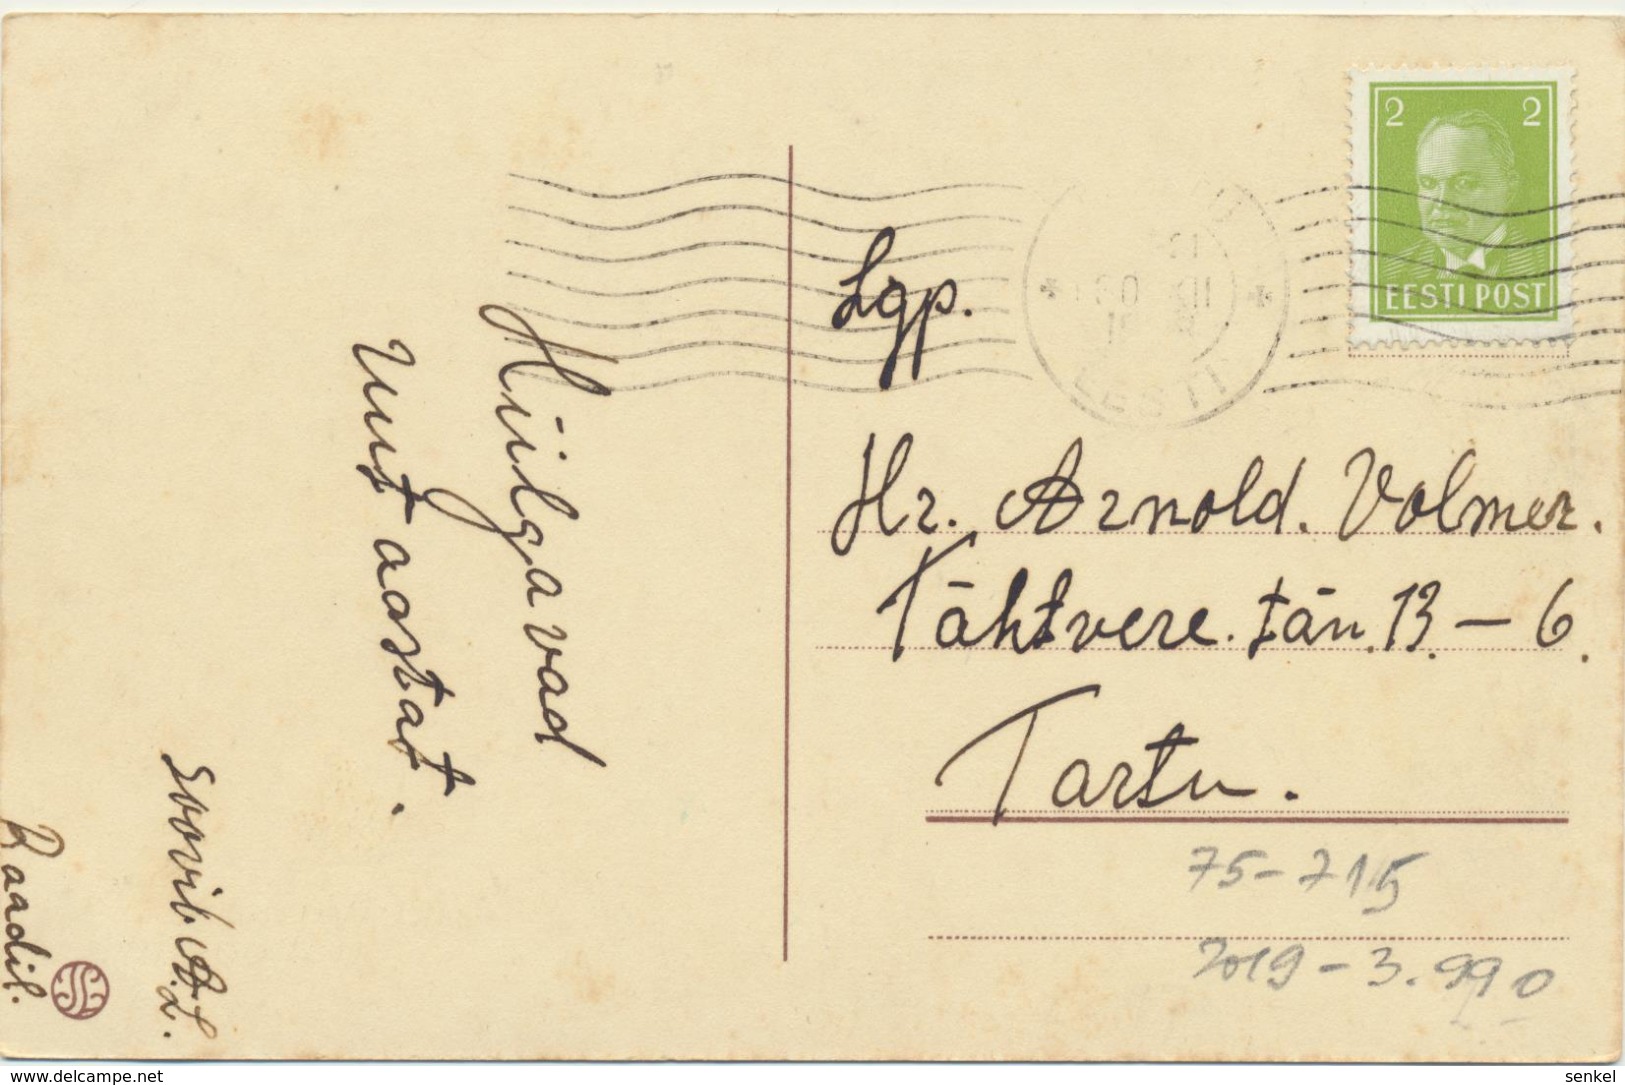 Hiilgavad
Uut aastat.
Soovib A.L.
Raadil.
2 2
EESTI POST
EESTI
Lgp.
Hr. Arnold. Volmer.
Tähtvere. tän. 13 – 6.
Tartu.
75-715
2019-3.990
www.delcampe.net
senkel